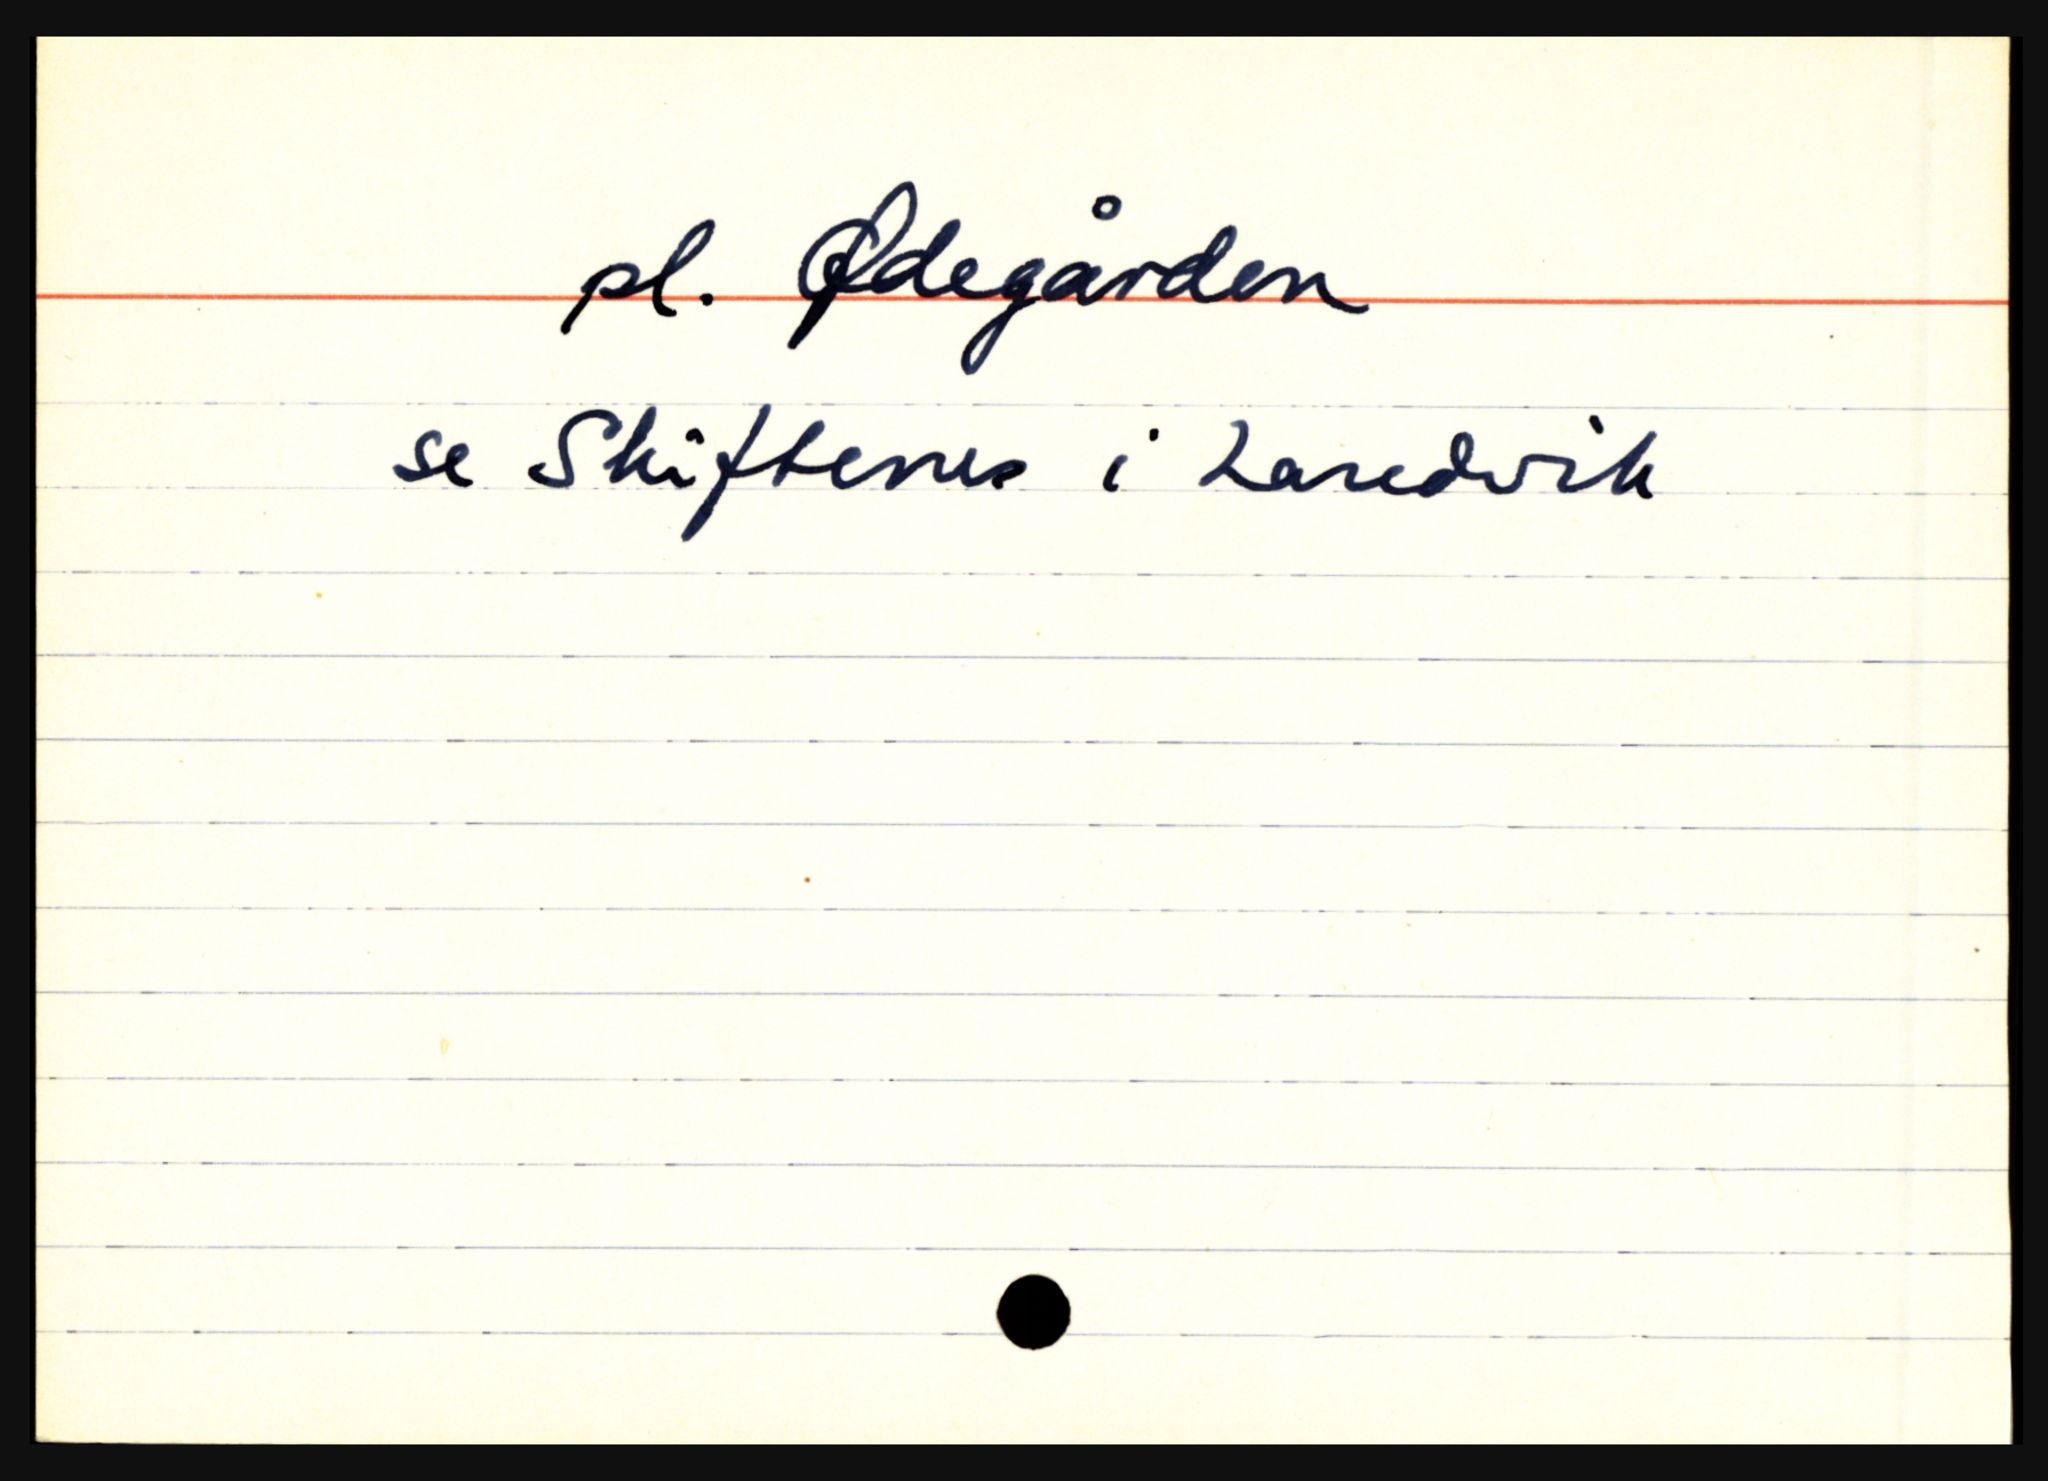 pl. Ødegården
se Skiftenes i Landvik